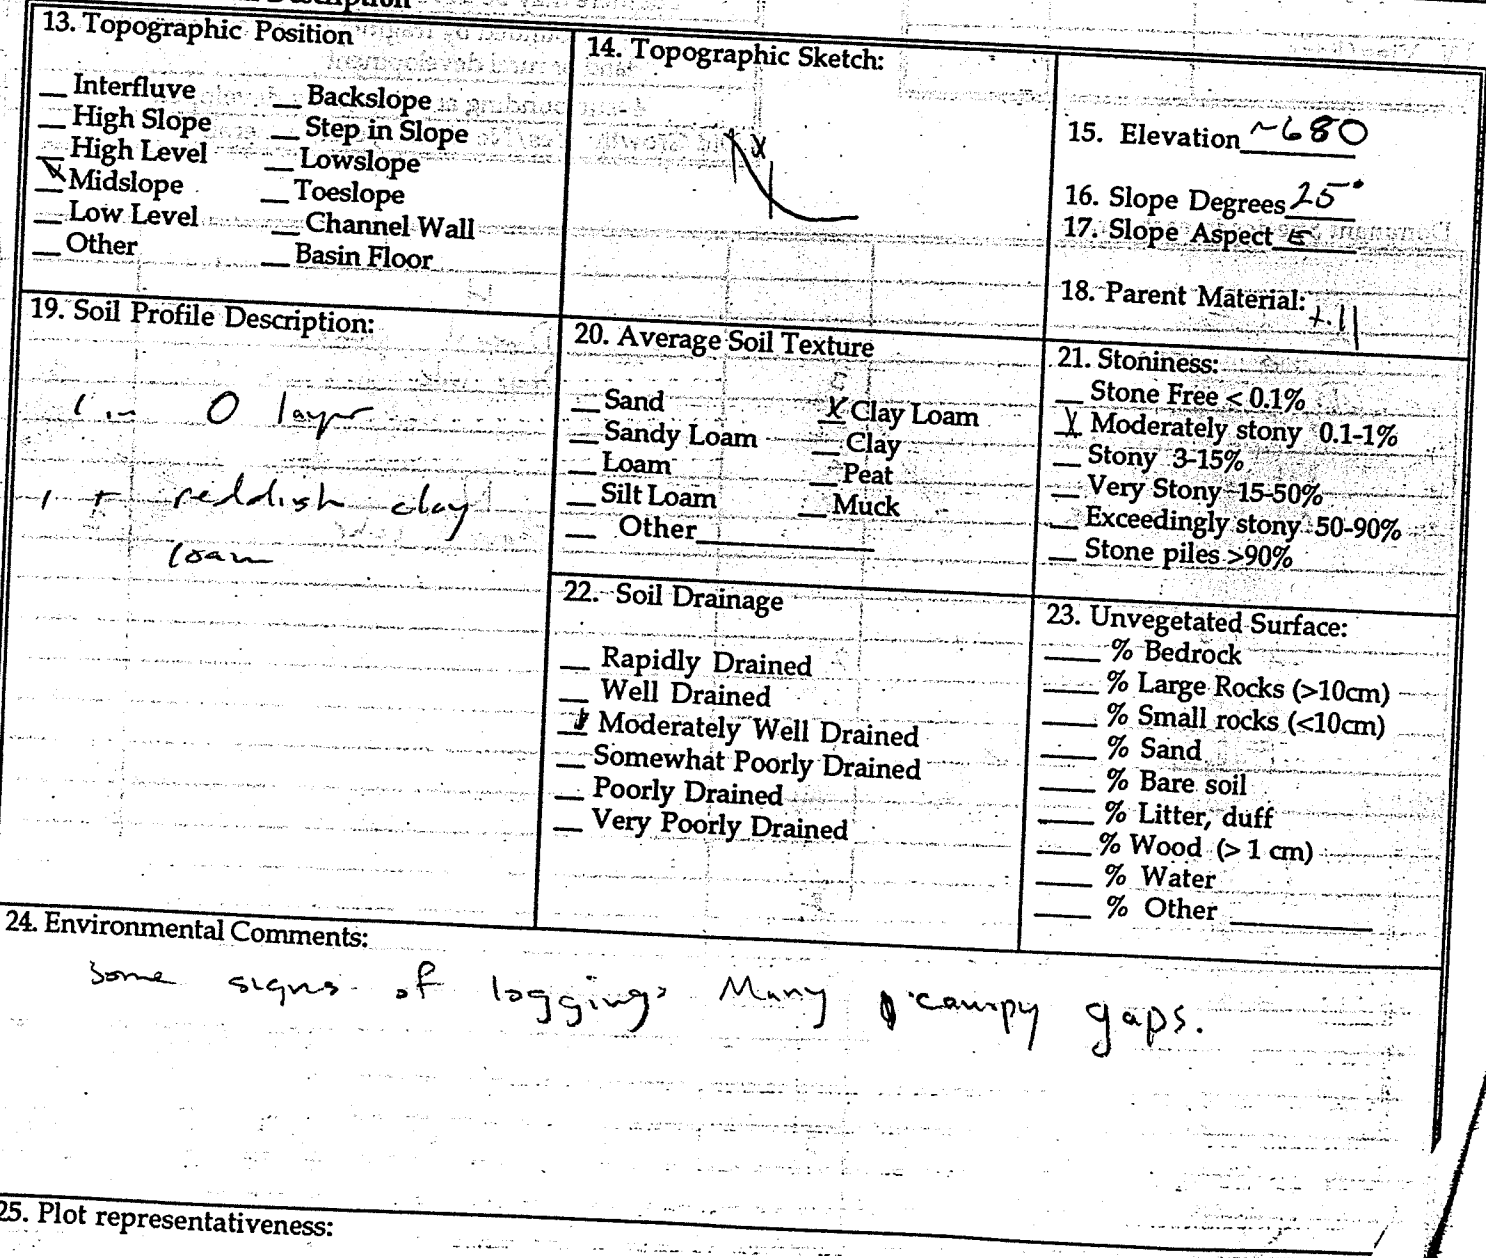 Description
13. Topographic Position
__ Interfluve __ Backslope
__ High Slope __ Step in Slope
__ High Level __ Lowslope
X Midslope __ Toeslope
__ Low Level __ Channel Wall
__ Other __ Basin Floor
14. Topographic Sketch:
X
15. Elevation ~680
16. Slope Degrees 25°
17. Slope Aspect E
18. Parent Material: till
19. Soil Profile Description:
1 in O layer
1 + reddish clay
loam
20. Average Soil Texture
__ Sand X Clay Loam
__ Sandy Loam __ Clay
__ Loam __ Peat
__ Silt Loam __ Muck
__ Other__________
21. Stoniness:
__ Stone Free < 0.1%
X Moderately stony 0.1-1%
__ Stony 3-15%
__ Very Stony 15-50%
__ Exceedingly stony 50-90%
__ Stone piles >90%
22. Soil Drainage
__ Rapidly Drained
__ Well Drained
X Moderately Well Drained
__ Somewhat Poorly Drained
__ Poorly Drained
__ Very Poorly Drained
23. Unvegetated Surface:
____ % Bedrock
____ % Large Rocks (>10cm)
____ % Small rocks (<10cm)
____ % Sand
____ % Bare soil
____ % Litter, duff
____ % Wood (> 1 cm)
____ % Water
____ % Other __________
24. Environmental Comments:
Some signs of logging. Many canopy gaps.
25. Plot representativeness: